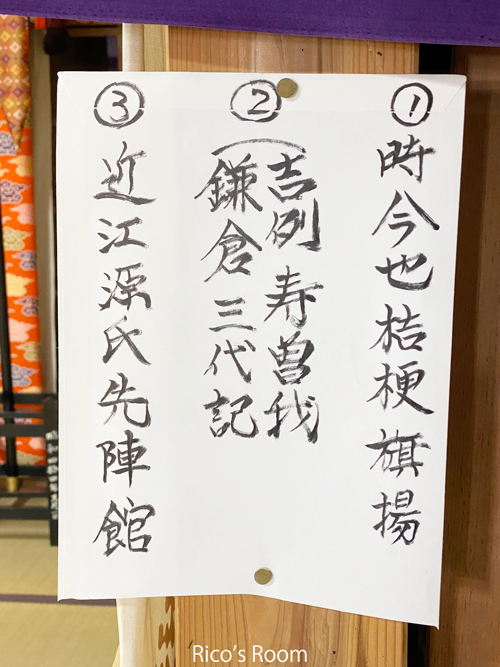 ①
時今也桔梗旗揚
②
吉例寿曽我
鎌倉三代記
③
近江源氏先陣館
Rico's Room